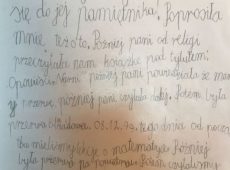 się do jej pamiętnika. Poprosiła
mnie też o to. Później pani od religi
przeczytała nam książkę pod tytułem:
Opowieści później pani powiedziała że mamy
przerwę, później pani czytała dalej. Potem była
przerwa obiadowa. 08.12.94. tego dnia od początku
mieliśmy lekcje matematyke. Później
była przerwa Potem czytaliśmy